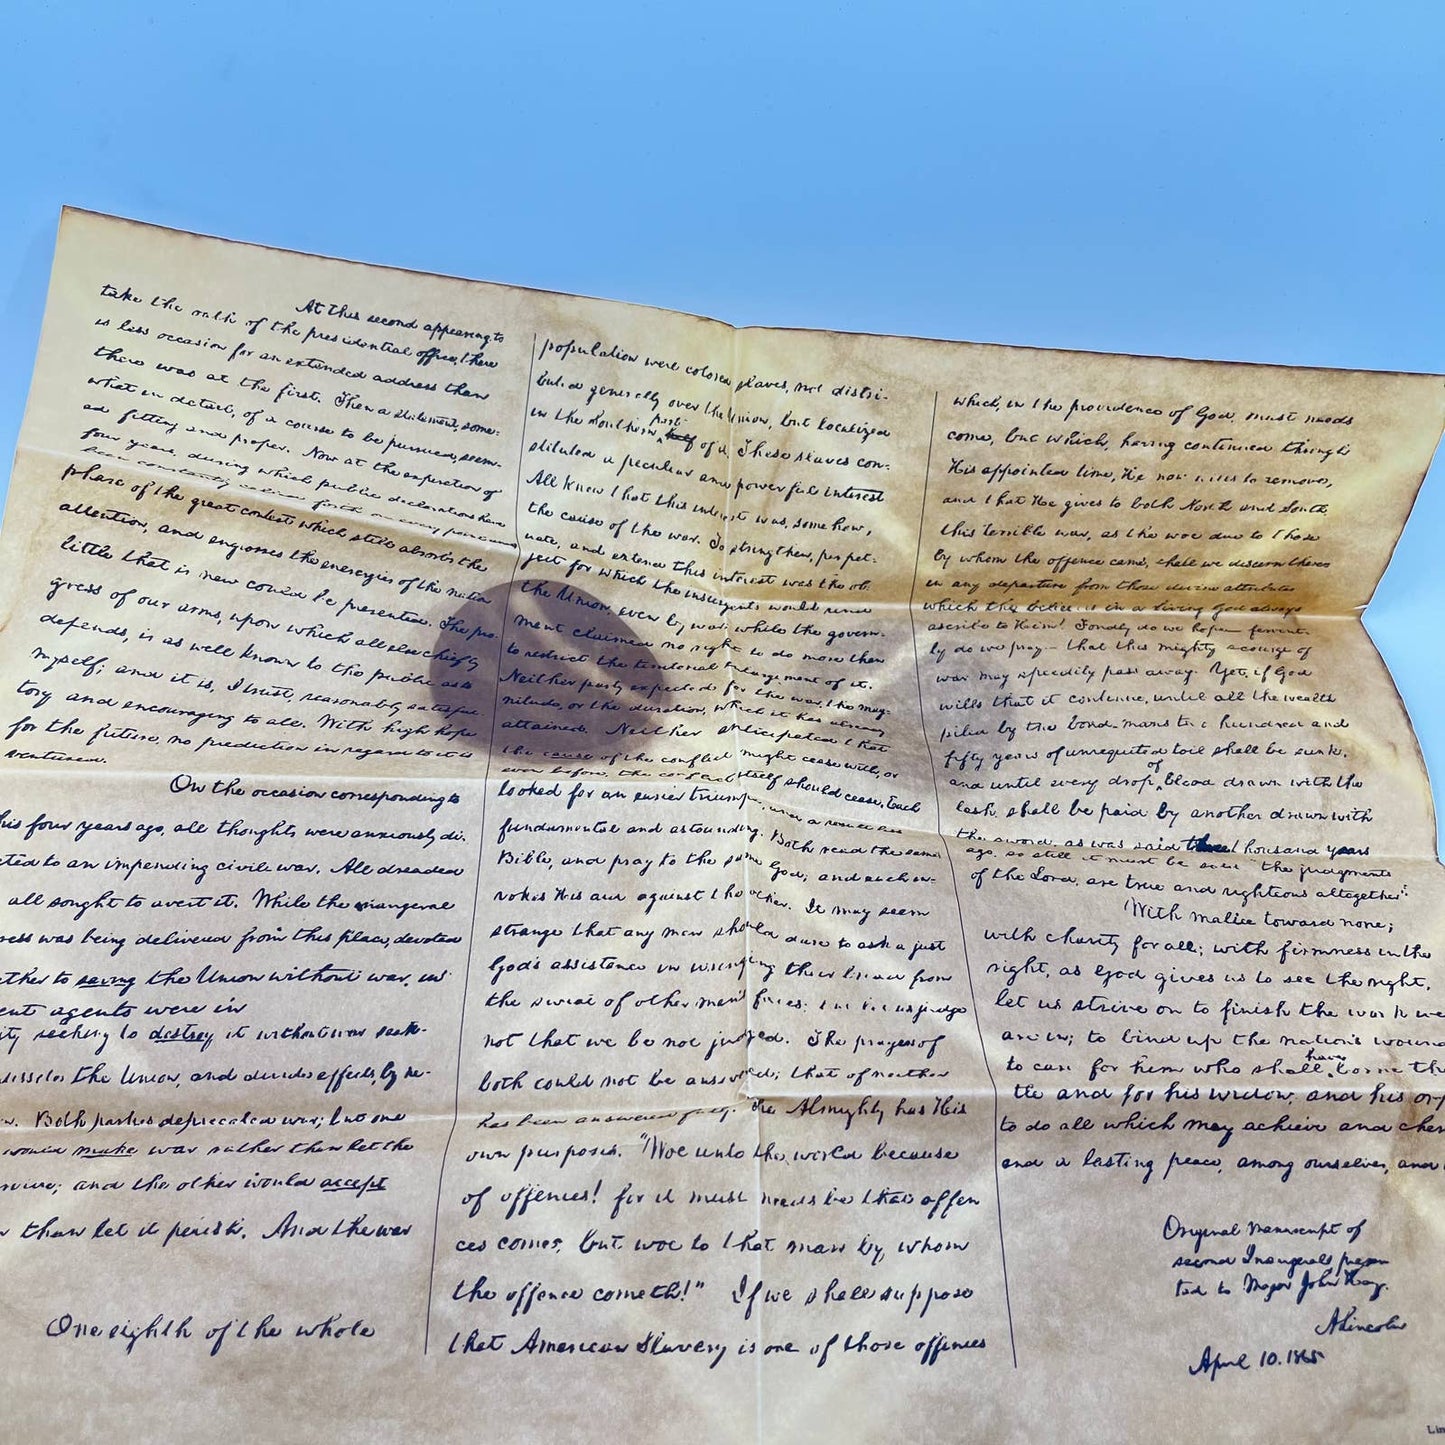 At this second appearing to
take the oath of the presidential office, there
is less occasion for an extended address than
there was at the first. Then a statement, some-
what in detail, of a course to be pursued, seem-
ed fitting and proper. Now at the expiration of
four years, during which public declarations have
been constantly called forth on every point and
phase of the great contest which still absorbs the
attention, and engrosses the energies of the nation
little that is new could be presented. The pro-
gress of our arms, upon which all else chiefly
depends, is as well known to the public as to
myself; and it is, I trust, reasonably satisfac-
tory and encouraging to all. With high hope
for the future, no prediction in regard to it is
ventured.
On the occasion corresponding to
his four years ago, all thoughts were anxiously di-
cted to an impending civil war. All dreaded
all sought to avert it. While the inaugeral
ress was being delivered from this place, devoted
ther to saving the Union without war, in
ent agents were in
ity seeking to destroy it without war seek-
dissolve the Union, and divide effects, by ne-
n. Both parties deprecated war; but one
would make war rather than let the
rvive; and the other would accept
r than let it perish. And the war
One eighth of the whole
population were colored slaves, not distri-
buted generally over the Union, but localized
in the Southern part of it. These slaves con-
stituted a peculiar and powerful interest
All know that this interest was, somehow,
the cause of the war. To strengthen, perpet-
uate, and extend this interest was the ob-
ject for which the insurgents would rend
the Union, even by war; while the govern-
ment claimed no right to do more than
to restrict the territorial enlargement of it.
Neither party expected for the war, the mag-
nitude, or the duration, which it has already
attained. Neither anticipated that
the cause of the conflict might cease with, or
even before, the conflict itself should cease, Each
looked for an easier triumph, and a result less
fundamental and astounding. Both read the same
Bible, and pray to the same God; and each in-
vokes His aid against the other. It may seem
strange that any men should dare to ask a just
God's assistance in wringing their bread from
the sweat of other men's faces; but let us judge
not that we be not judged. The prayers of
both could not be answered; that of neither
has been answered fully. The Almighty has His
own purposes. "Woe unto the world because
of offences! for it must needs be that offen
ces come; but woe to that man by whom
the offence cometh!" If we shall suppose
that American Slavery is one of those offences
which, in the providence of God, must needs
come, but which, having continued through
His appointed time, He now wills to remove,
and that He gives to both North and South
this terrible war, as the woe due to those
by whom the offence came, shall we discern there
in any departure from those divine attributes
which the believers in a living God always
ascribe to Him? Fondly do we hope fervent-
ly do we pray - that this mighty scourge of
war may speedily pass away. Yet, if God
wills that it continue, until all the wealth
piled by the bond-man's two hundred and
fifty years of unrequited toil shall be sunk,
and until every drop of blood drawn with the
lash, shall be paid by another drawn with
the sword, as was said three thousand years
ago, so still it must be said "the judgments
of the Lord, are true and righteous altogether".
With malice toward none;
with charity for all; with firmness in the
right, as God gives us to see the right,
let us strive on to finish the work we
are in; to bind up the nation's wound
to care for him who shall have borne the
tle and for his widow, and his orp
to do all which may achieve and cher
and a lasting peace, among ourselves, and
Original manuscript of
second Inaugeral presen
ted to Major John Hay.
A Lincoln
April 10. 1865
Lin